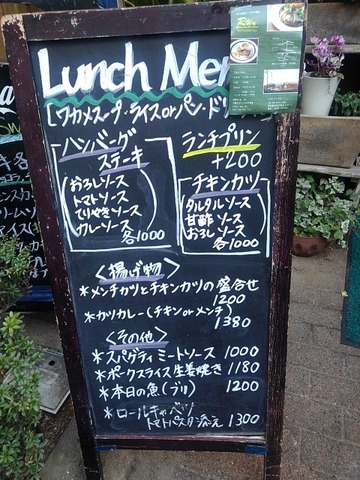 Lunch Me
[ワカメスープ・ライスorパン・ド
ハンバーグ
ステーキ
おろしソース
トマトソース
てりやきソース
カレーソース
各1000
ランチプリン
+200
チキンカツ
タルタルソース
甘酢ソース
おろしソース
各1000
<揚げ物>
*メンチカツとチキンカツの盛合せ
1200
*カツカレー(チキンorメンチ)
1380
<その他>
*スパゲティミートソース 1000
*ポークスライス生姜焼き 1180
*本日の魚(ブリ) 1200
*ロールキャベツ
トマトパスタ添え 1300